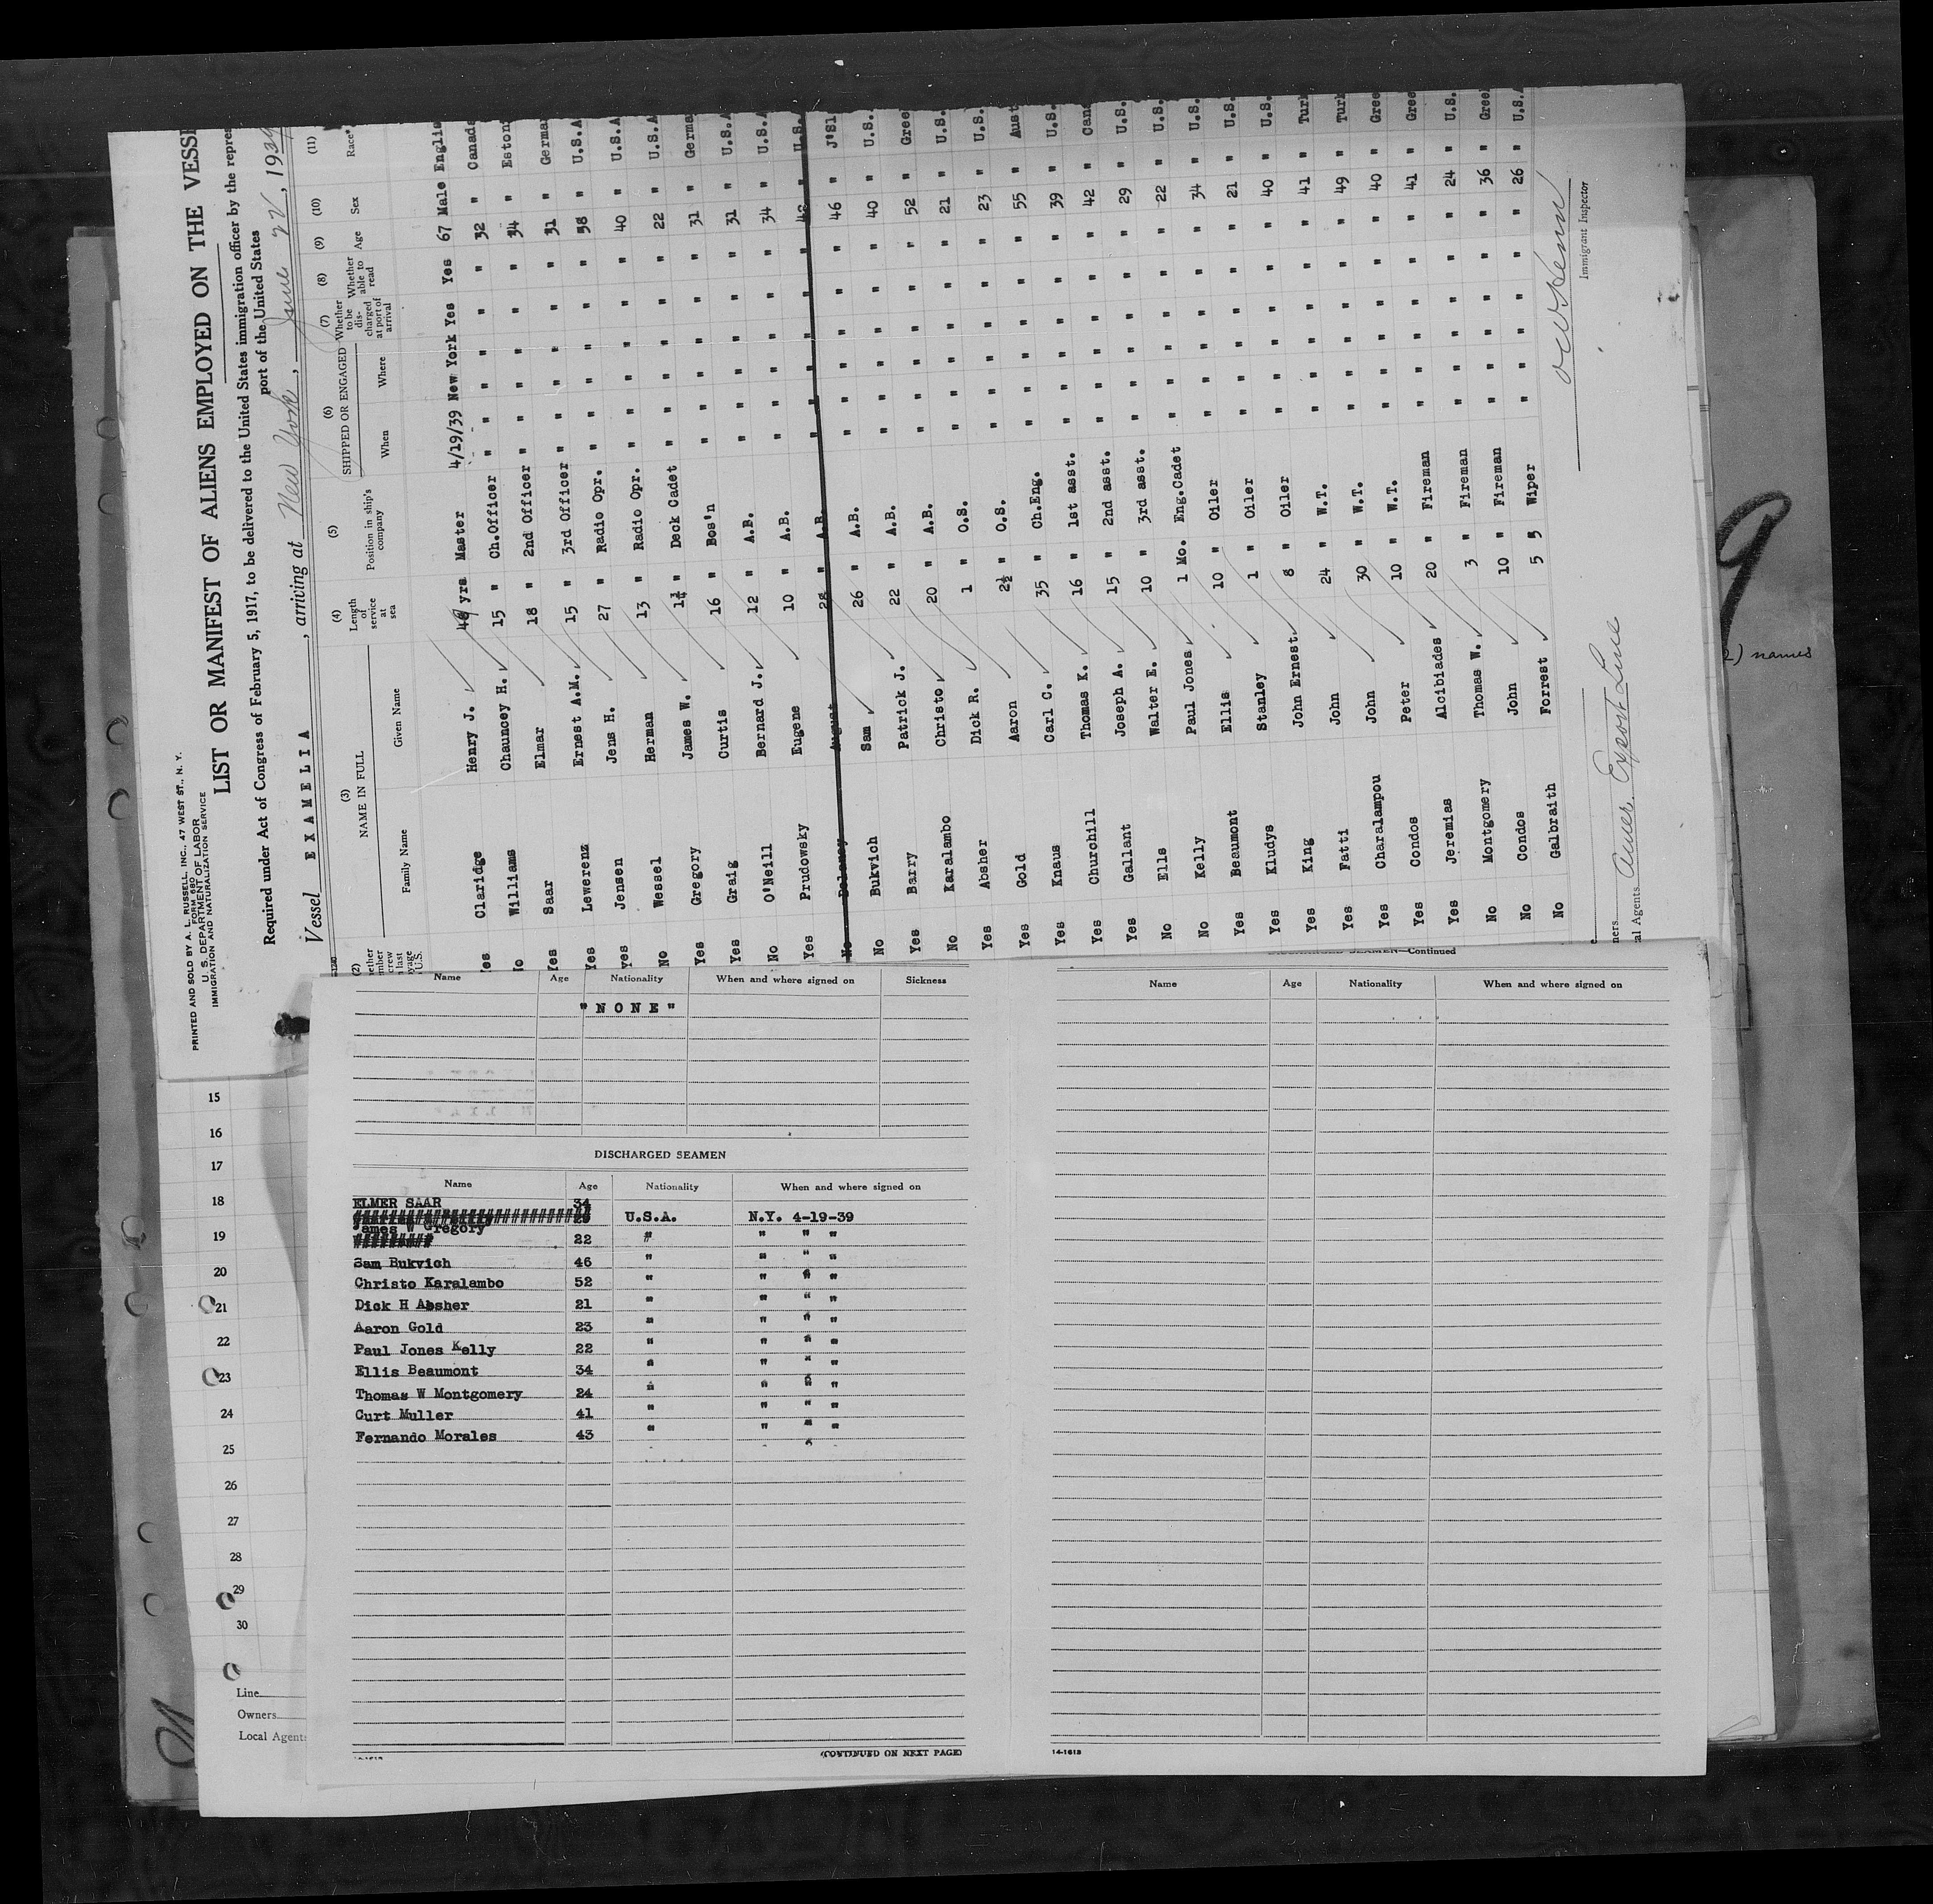 PRINTED AND SOLD BY A. L. RUSSELL, INC., 47 WEST ST., N. Y.
FORM 680
U. S. DEPARTMENT OF LABOR
IMMIGRATION AND NATURALIZATION SERVICE
LIST OR MANIFEST OF ALIENS EMPLOYED ON THE VESSE
Required under Act of Congress of February 5, 1917, to be delivered to the United States immigration officer by the repres
port of the United States
Vessel EXAMELIA, arriving at New York, June 22, 1939
(2) (3) NAME IN FULL (4) Length of service at sea (5) Position in ship's company (6) SHIPPED OR ENGAGED (7) Whether to be discharged at port of arrival (8) Whether able to read (9) Age (10) Sex (11) Race*
Family Name Given Name When Where
es Claridge Henry J. yrs Master 4/19/39 New York Yes Yes 67 Male Englis
o Williams Chauncey H. 15 " Ch.Officer " " " " 32 " Canada
es Saar Elmar 18 " 2nd Officer " " " " 34 " Eston
Yes Lewerenz Ernest A.M. 15 " 3rd Officer " " " " 31 " Germa
Yes Jensen Jens H. 27 " Radio Opr. " " " " 58 " U.S.A
No Wessel Herman 13 " Radio Opr. " " " " 40 " U.S.A
Yes Gregory James W. 1¾ " Deck Cadet " " " " 22 " U.S.A
Yes Graig Curtis 16 " Bos'n " " " " 31 " Germa
No O'Neill Bernard J. 12 " A.B. " " " " 31 " U.S.A
Yes Prudowsky Eugene 10 " A.B. " " " " 34 " U.S.A
No Delaney August 28 " A.B. " " " " 42 " U.S.A
No Bukvich Sam 26 " A.B. " " " " 46 " J'Sl
Yes Barry Patrick J. 22 " A.B. " " " " 40 " U.S.
No Karalambo Christo 20 " A.B. " " " " 52 " Gree
Yes Absher Dick R. 1 " O.S. " " " " 21 " U.S.
Yes Gold Aaron 2½ " O.S. " " " " 23 " U.S.
Yes Knaus Carl C. 35 " Ch.Eng. " " " " 55 " Aust
Yes Churchill Thomas K. 16 " 1st asst. " " " " 39 " U.S.
Yes Gallant Joseph A. 15 " 2nd asst. " " " " 42 " Can
No Ells Walter E. 10 " 3rd asst. " " " " 29 " U.S.
No Kelly Paul Jones 1 Mo. Eng.Cadet " " " " 22 " U.S.
Yes Beaumont Ellis 10 " Oiler " " " " 34 " U.S.
Yes Kludys Stanley 1 " Oiler " " " " 21 " U.S.
Yes King John Ernest 8 " Oiler " " " " 40 " U.S.
Yes Fatti John 24 " W.T. " " " " 41 " Turk
Yes Charalampou John 30 " W.T. " " " " 49 " Turk
Yes Condos Peter 10 " W.T. " " " " 40 " Gree
Yes Jeremias Alcibiades 20 " Fireman " " " " 41 " Gree
No Montgomery Thomas W. 3 " Fireman " " " " 24 " U.S.
No Condos John 10 " Fireman " " " " 36 " Gree
No Galbraith Forrest 5 Wiper " " " " 26 " U.S.A
Immigrant Inspector
al Agents Amer. Export Line
2) names
Name Age Nationality When and where signed on Sickness
"NONE"
DISCHARGED SEAMEN
Name Age Nationality When and where signed on
ELMER SAAR 34
U.S.A. N.Y. 4-19-39
James W Gregory
22 " " " "
Sam Bukvich 46 " " " "
Christo Karalambo 52 " " " "
Dick H Absher 21 " " " "
Aaron Gold 23 " " " "
Paul Jones Kelly 22 " " " "
Ellis Beaumont 34 " " " "
Thomas W Montgomery 24 " " " "
Curt Muller 41 " " " "
Fernando Morales 43 " " " "
(CONTINUED ON NEXT PAGE)
Continued
Name Age Nationality When and where signed on
14-1613
15
16
17
18
19
20
21
22
23
24
25
26
27
28
29
30
Line
Owners
Local Agent